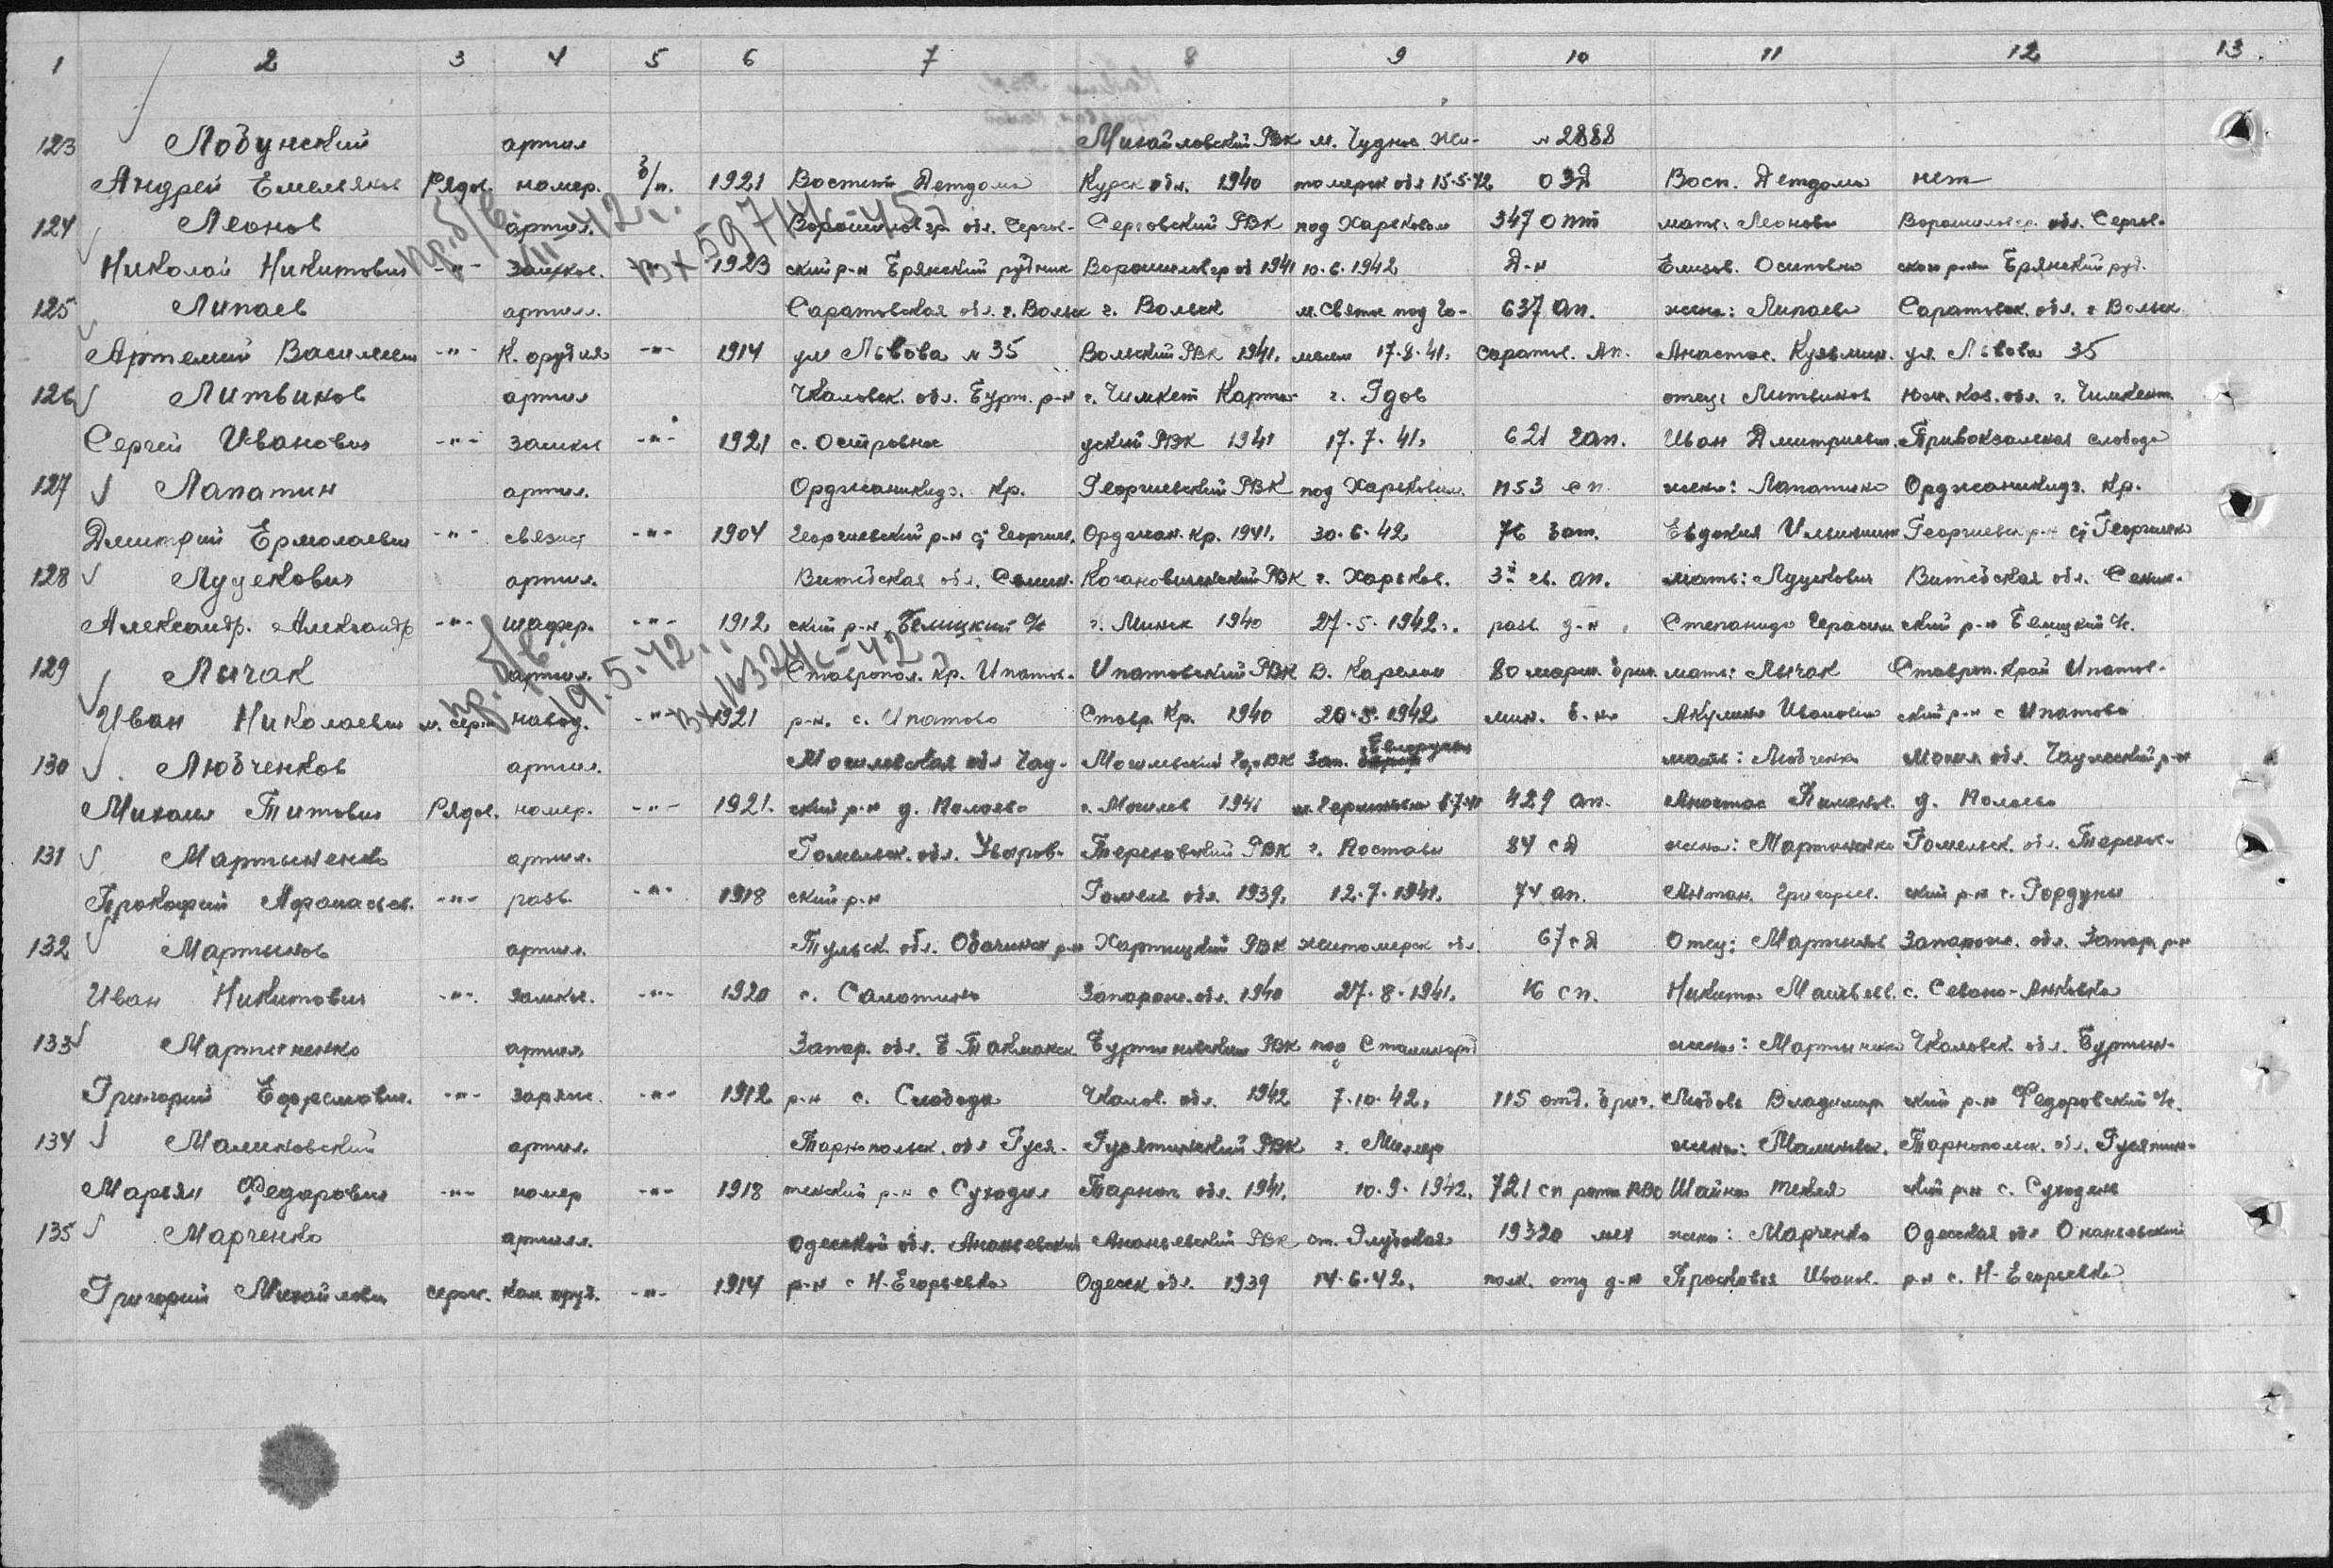 1 2 3 4 5 6 7 8 9 10 11 12 13
123 Лобунский артил Михайловский РВК м. Чуднов Жи- № 2888
Андрей Емельянов Рядов. номер. б/п. 1921 Воспит Детдома Курск обл. 1940 томирск обл 15-5-42 ОЗД Восп. Детдома нет
124 Леонов артил. Ворошиловгр. обл. Серго- Серговский РВК под Харьковом 347 О пт мать: Леонова Ворошиловгр. обл. Серго-
Николай Никитович -"- замков. 1923 ский р-н Брянский рудник Ворошиловгр об 1941 10.6.1942 Д-н Елизов. Осиповна ского р-на Брянский руд.
пр. б/в. 42 г.
Вх 597
125 Липаев артилл. Саратовская обл. г. Вольск г. Вольск м. Святое под Го- 637 ап. жена: Липаева Саратовск. обл. г Вольск
Артемий Васильевич -"- К. орудия -"- 1914 ул Львова № 35 Вольский РВК 1941. мелем 17.8.41. саратов. Ап. Анастас. Кузьмин. ул. Львова 35
126 Литвинов артил Чкаловск. обл. Бурт. р-н г. Чимкент г. Гдов отец: Литвинов Юж. Каз. обл. г. Чимкент
Сергей Иванович -"- замков -"- 1921 с. Островное РВК 1941 17.7.41. 621 гап. Иван Дмитриевич. Привокзальная слобода
127 Лапатин артил. Орджоникидз. Кр. Георгиевский РВК под Харьковом. 1153 сп. жена: Лапатина Орджоникидз. Кр.
Дмитрий Ермолаевич -"- связист -"- 1904 Георгиевский р-н ст Георгиев. Орджон. Кр. 1941. 30.6.42. 76 зап. Евдокия Ильинишн Георгиевск р-н ст Георгиевка
128 Луцекович артил. Витебская обл. Сенин. Кагановический РВК г. Харьков. 3й гв. ап. мать: Луцекович Витебская обл. Сенин-
Александр. Александр -"- шафер. -"- 1912. ский р-н Белицкий с/с г. Минск 1940 27-5-1942 г. разв. д-н Степанида Герасим ский р-н Белицкий с/с.
129 Лычак артил. Ставропол. Кр. Ипатов- Ипатовский РВК В. Карелии 80 морск. бриг. мать: Лычак Ставроп. Край Ипатов-
Иван Николаевич м. серж навод. -"- 1921 р-н. с. Ипатово Ставр. Кр. 1940 20-5-1942 мин. б-н Акулина Ивановна ский р-н с Ипатово
пр. б/в. 19.5.42 г.
130 Любченков артил. Могилевская обл Чау- Могилевский ГорВК Зап. Белоруссия мать: Любченко Могил обл. Чаусский р-н
Михаил Титович Рядов. номер. -"- 1921. ский р-н д. г. Могилев 1941 8.7.41 429 ап. Анастас д.
131 Мартыненко артил. Гомельск. обл. Уваров- Тереховский РВК г. Поставы 84 сд жена: Мартыненко Гомельск. обл. Терехов-
Прокофий Афанасьев. -"- разв. -"- 1918 ский р-н Гомель обл. 1939. 12.7.1941. 74 ап. Григорьев. ский р-н с. Гордуны
132 Мартынов артил. Тульск. обл. р-н РВК житомирск обл. 67 сд Отец: Мартынов Запорож. обл. Запор. р-н
Иван Никитович -"- замков. -"- 1920 с. Запорож. обл. 1940 27.8.1941. 16 сп. Никита Матвеев. с.
133 Мартыненко артил Запор. обл. Б Такмакск. Буртинский РВК под Сталинград жена: Мартыненко Чкаловск. обл. Буртин-
Григорий Ефремович. -"- заряж. -"- 1912 р-н с. Слобода Чкалов. обл. 1942 7.10.42. 115 отд. бриг. Любовь Владимир ский р-н Федоровский с/с.
134 Малиновский артил. Тарнопольск. обл Гуся- Гусятинский РВК г. Миллер жена: Малиновск. Тарнопольск. обл. Гусятин-
Марьян Федорович -"- номер -"- 1918 тинский р-н с Суходил Тарноп обл. 1941. 10.9.1942. 721 сп рота ПВО Шайна ский р-н с. Суходил
135 Марченко артилл. Одесской обл. Ананьевский Ананьевский РВК ст. 19320 мех жена: Марченко Одесская обл Онаньевский
Григорий Михайлович серж. Ком оруд. -"- 1914 р-н с Н-Егорьевка Одесск обл. 1939 14.6.42. полк. отд д-н Прасковья Иванов. р-н с. Н-Егорьевка